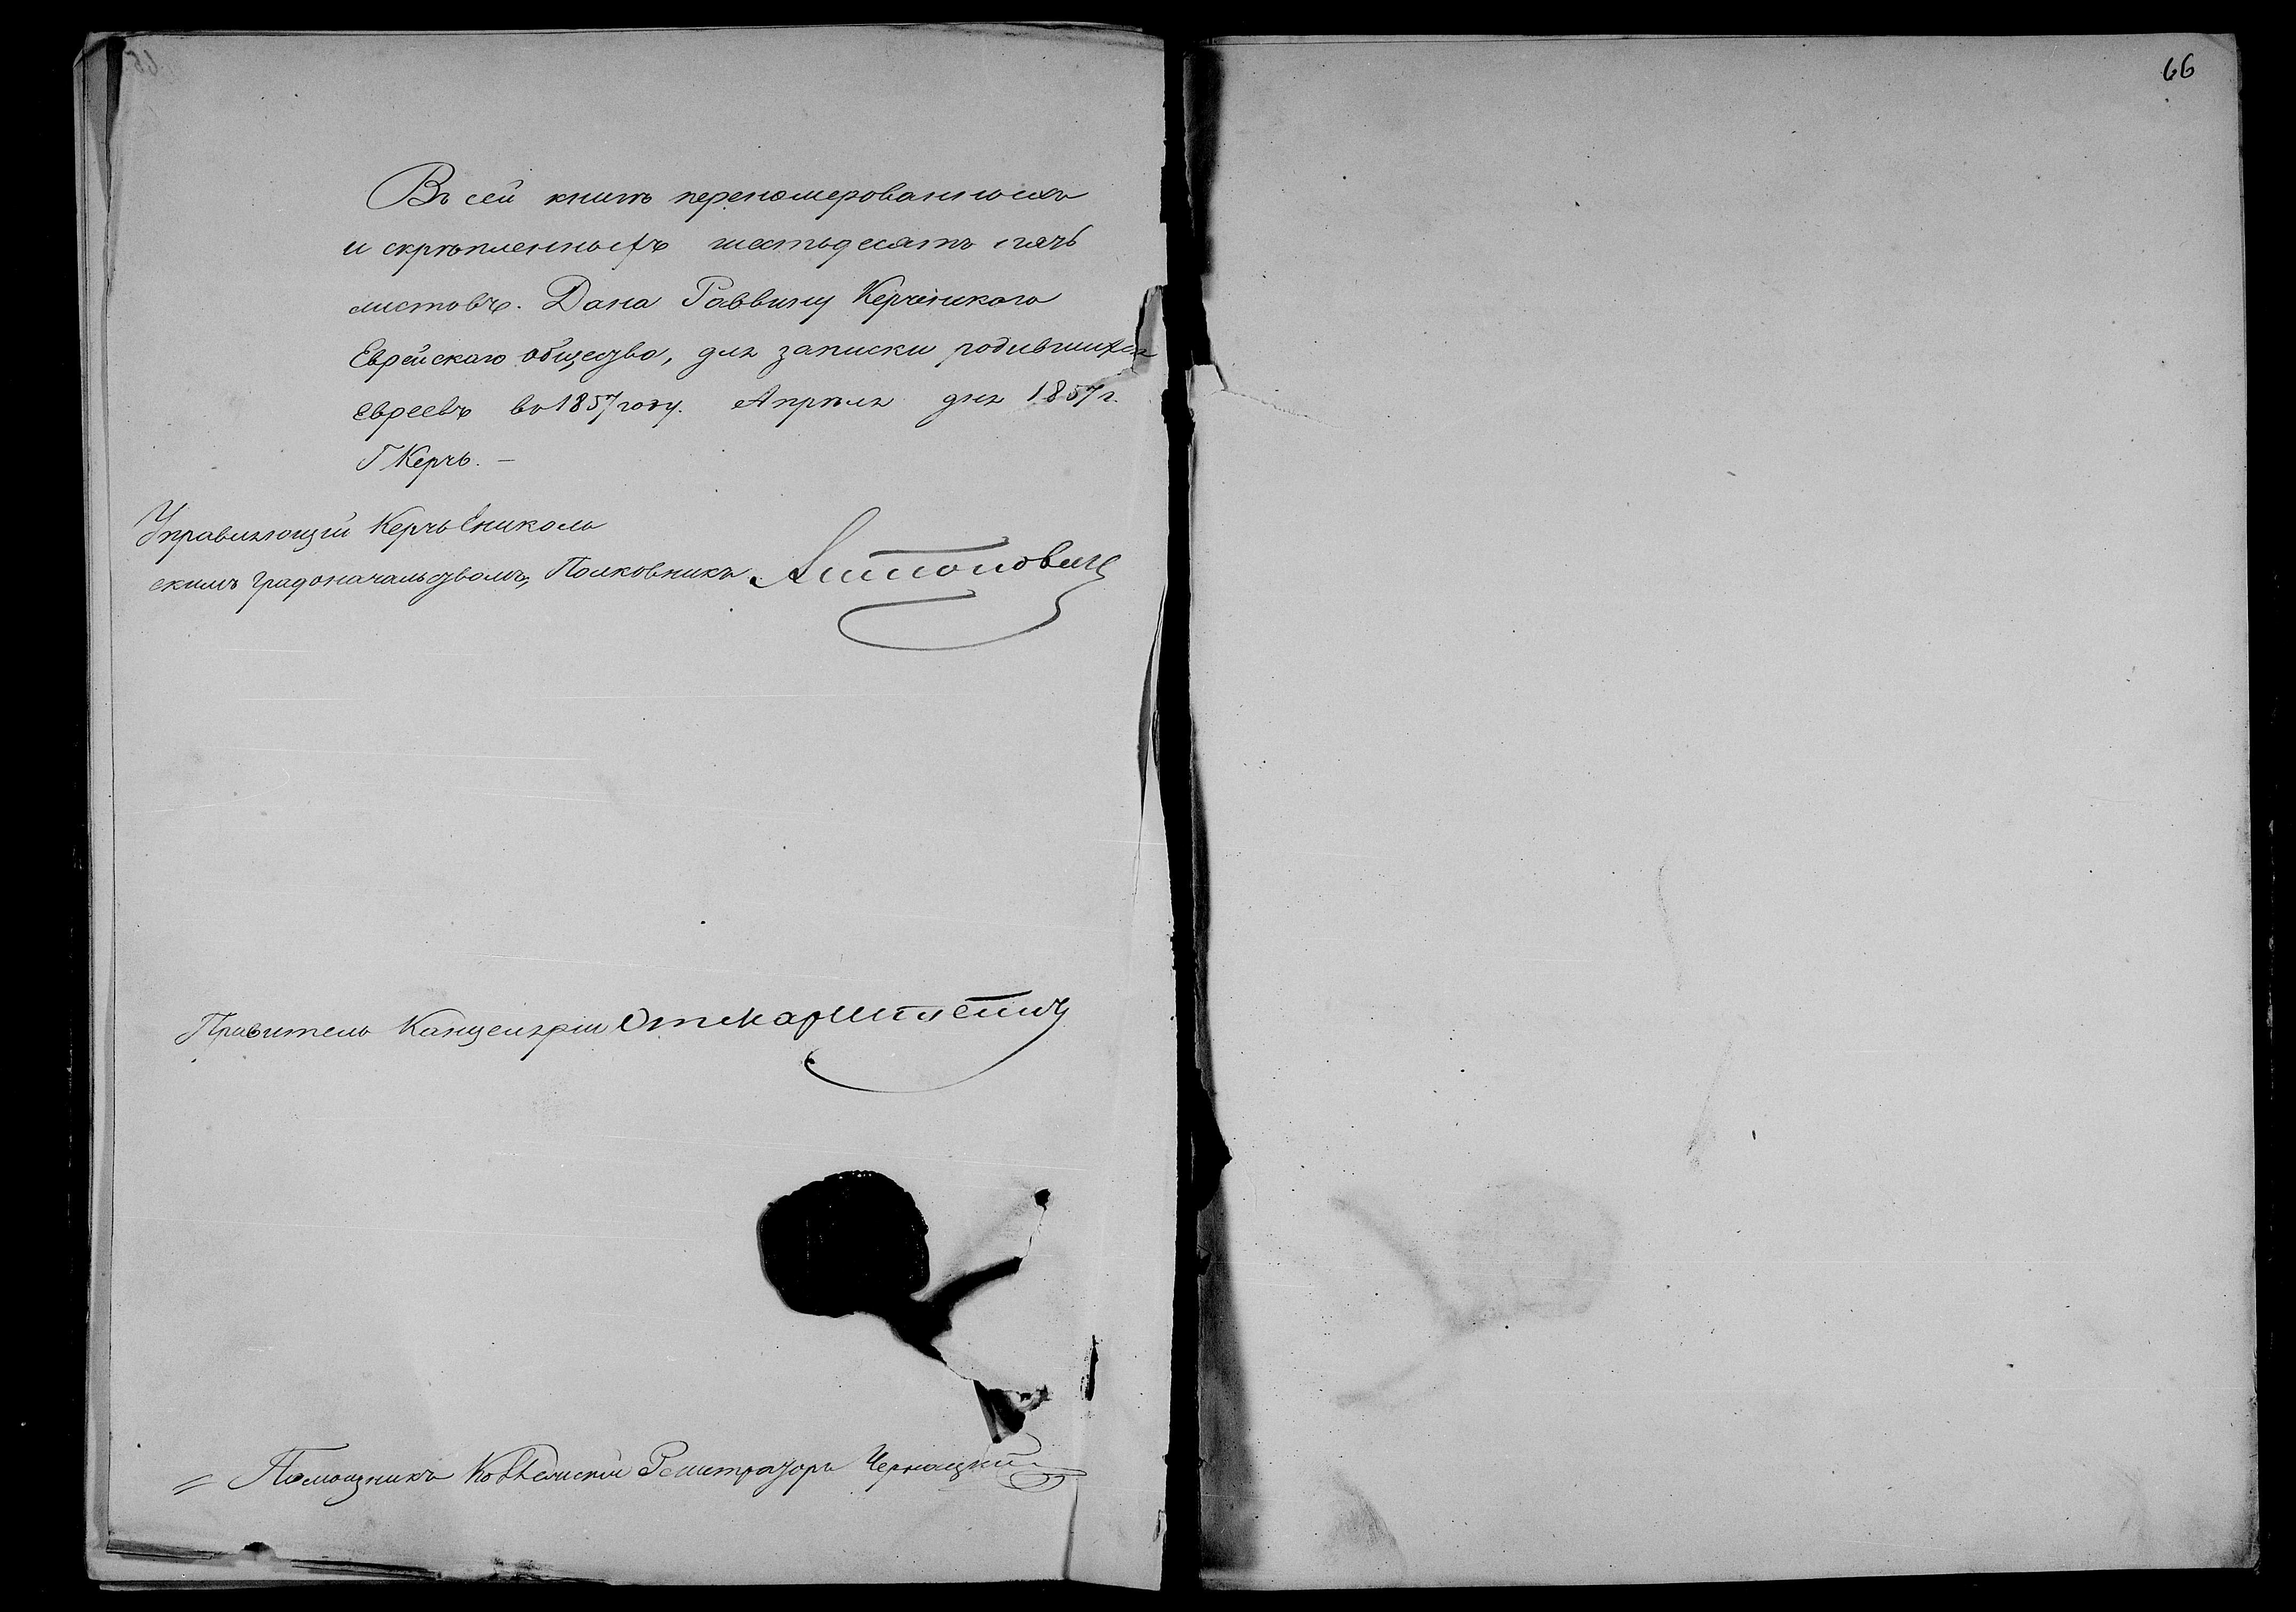 66
Въ сей книгѣ переномерованныхъ
и скрѣпленныхъ шестьдесятъ пять
листовъ. Дана Раввину Керченскаго
Еврейскаго общества, для записки родившихся
евреевъ въ 1857 году. Апрѣля дня 1857 г.
Г Керчь. —
Управляющій Керчь Ениколь
скимъ Градоначальствомъ, Полковникъ Антоновичъ
Правитель Канцеляріи
Помощникъ Коллежскій Регистраторъ